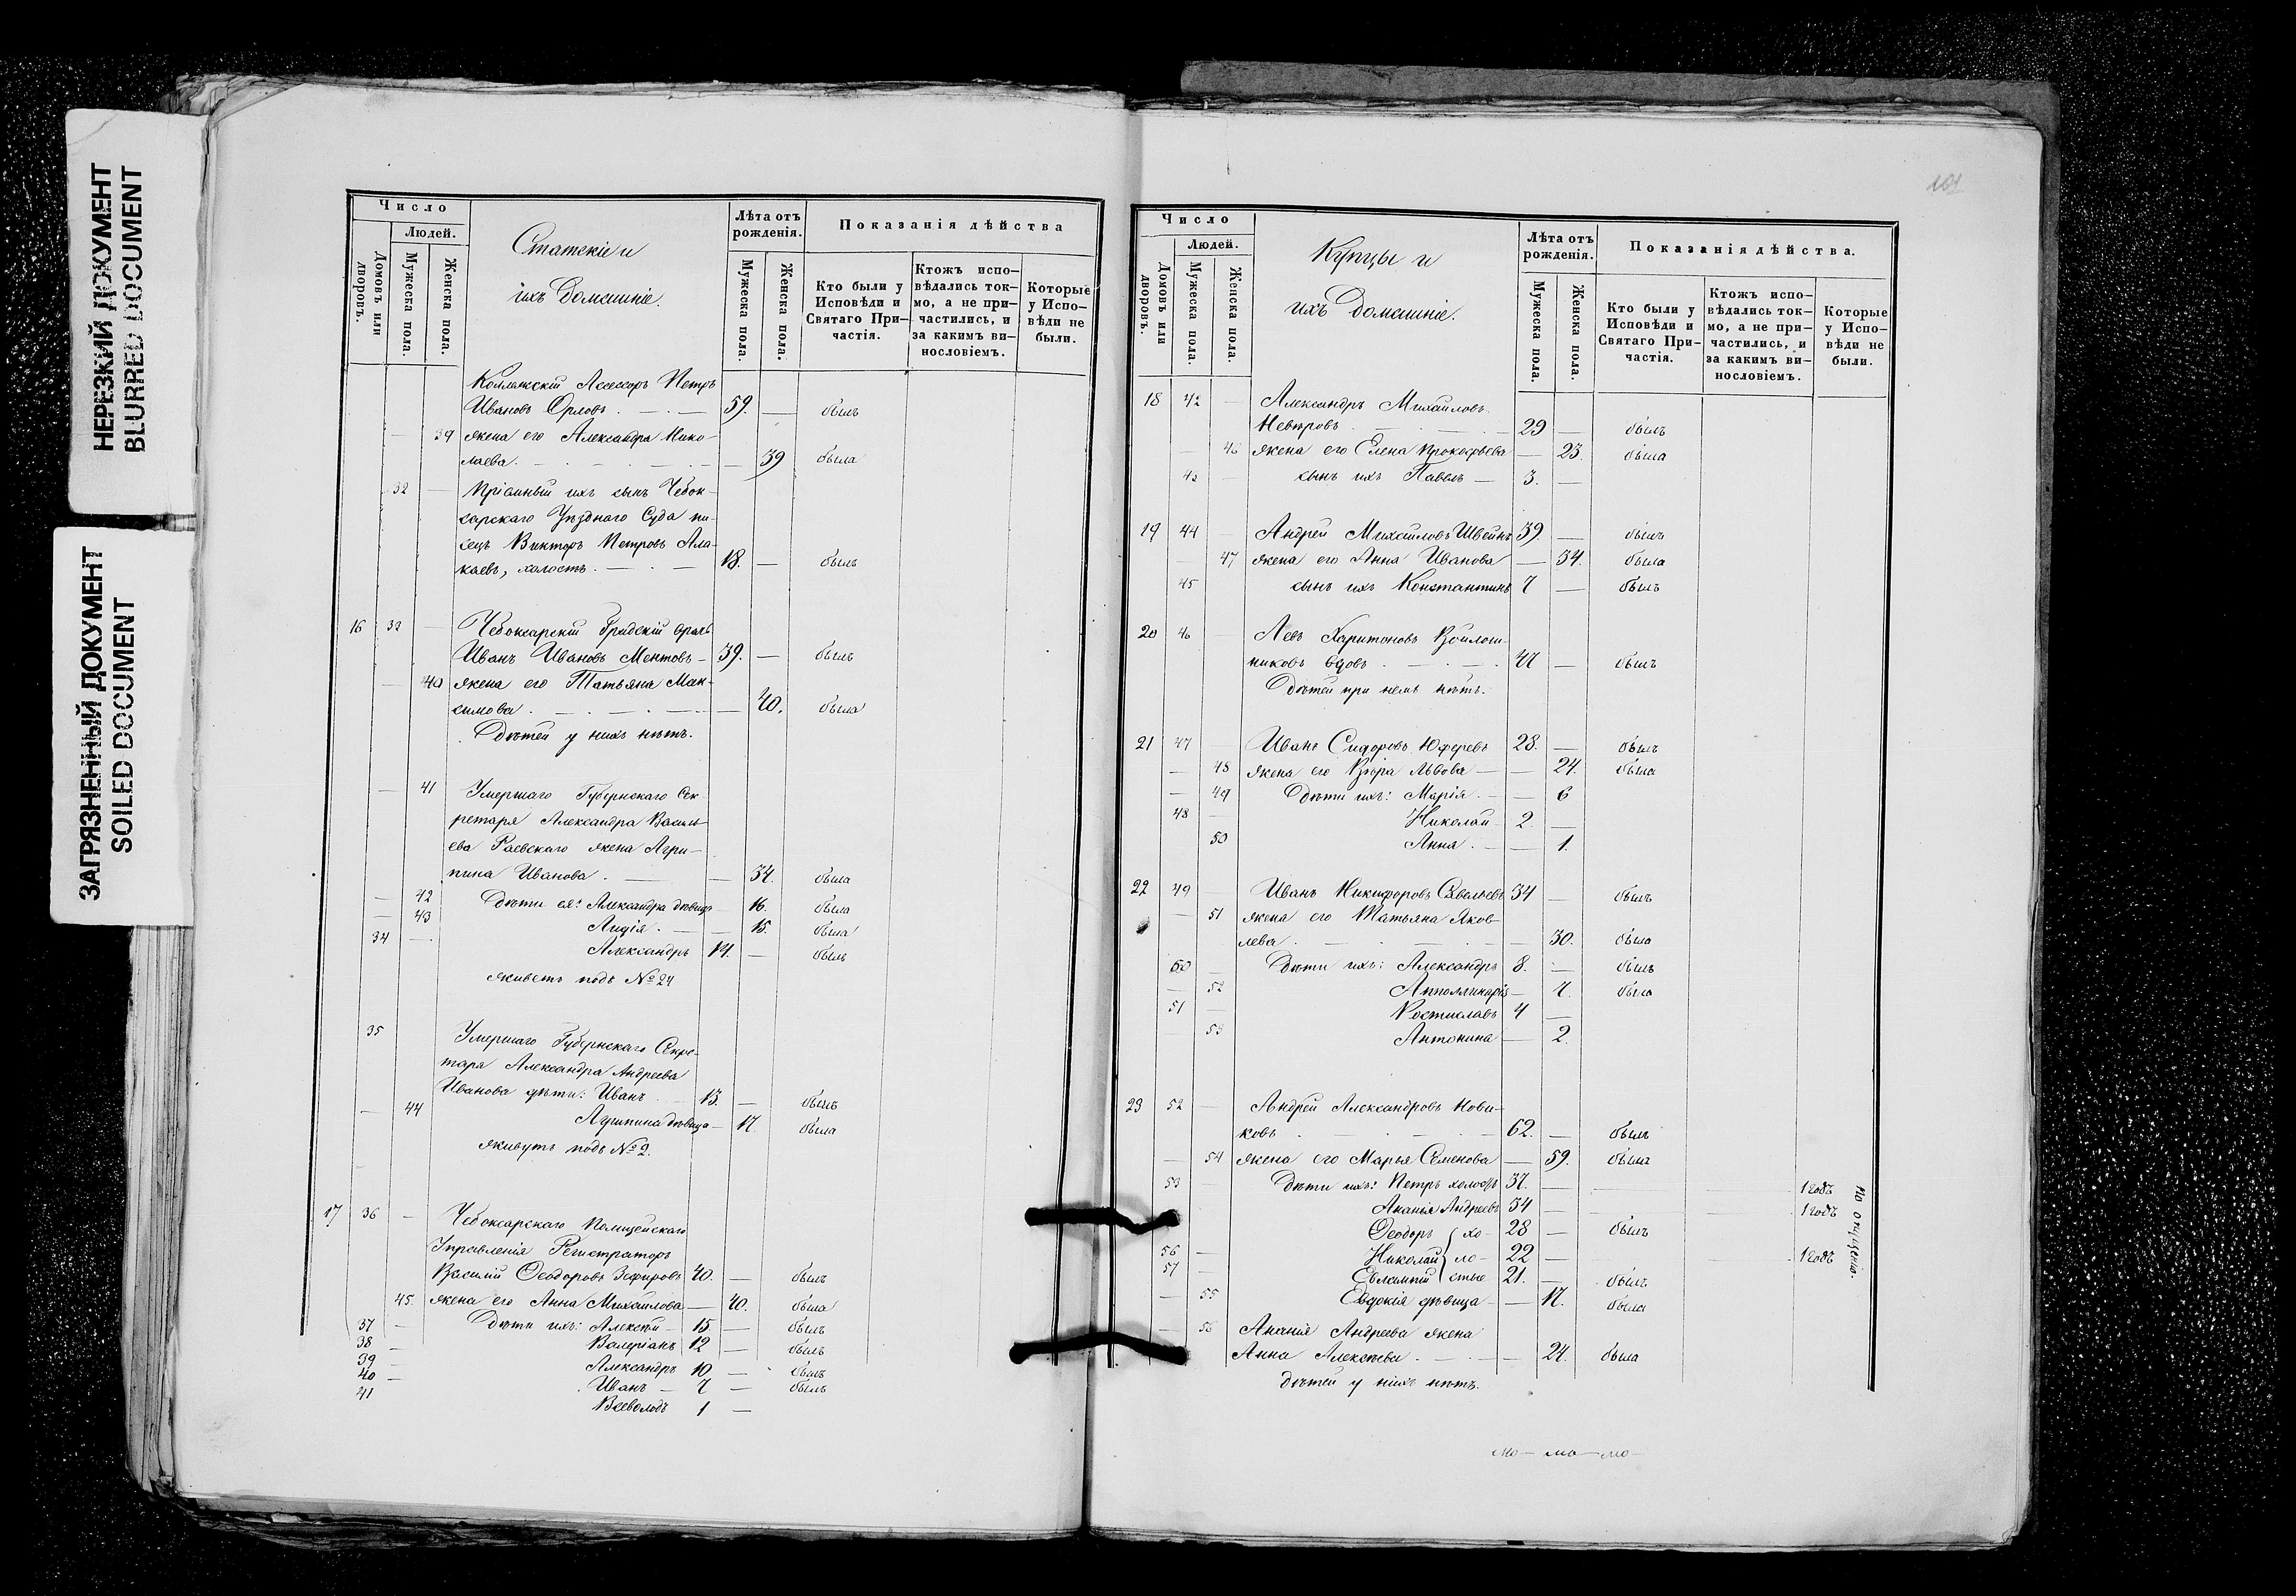 НЕРЕЗКИЙ ДОКУМЕНТ
BLURRED DOCUMENT
ЗАГРЯЗНЕННЫЙ ДОКУМЕНТ
SOILED DOCUMENT
Число
Людей.
Домовъ или дворовъ.
Мужеска пола.
Женска пола.
Статскіе и
ихъ домашніе.
Лѣта отъ рожденія.
Мужеска пола.
Женска пола.
Показанія дѣйства
Кто были у Исповѣди и Святаго Причастія.
Ктожъ исповѣдались токмо, а не причастились, и за какимъ винословіемъ.
Которые у Исповѣди не были.
Коллежскій Ассесоръ Петръ
Ивановъ Орловъ 59. — былъ
— 39 жена его Александра Нико-
лаева — 39 была
32 — Пріемный ихъ сынъ Чебок-
сарскаго Уѣзднаго Суда пи-
сецъ Викторъ Петровъ Ала-
каевъ, холостъ 18. — былъ
16 33 — Чебоксарскій Градскій врачъ
Иванъ Ивановъ Ментовъ 39. — былъ
— 40 жена его Татьяна Мак-
симова — 40. была
Дѣтей у нихъ нѣтъ.
— 41 Умершаго Губернскаго Сек-
ретаря Александра Василь-
ева Раевскаго жена Агри-
пина Иванова — 34. была
— 42 Дѣти ея: Александра дѣвица — 16. была
— 43 Лидія — 15. была
34 — Александръ 14. — былъ
живетъ подъ № 24
35 Умершаго Губернскаго Секре-
таря Александра Андреева
Иванова дѣти: Иванъ 13. — былъ
— 44 Агрипина дѣвица — 17. была
живутъ подъ № 2.
17 36 — Чебоксарскаго Полицейскаго
Управленія Регистраторъ
Василій Ѳеодоровъ Зефировъ 40. — былъ
45. жена его Анна Михайлова — 40. была
37 — Дѣти ихъ: Алексѣй 15 — былъ
38 — Валеріанъ 12 — былъ
39 — Александръ 10 — былъ
40 — Иванъ 7 — былъ
41 Всеволодъ 1 —
101
Число
Людей.
Домовъ или дворовъ.
Мужеска пола.
Женска пола.
Купцы и
ихъ домашніе.
Лѣта отъ рожденія.
Мужеска пола.
Женска пола.
Показанія дѣйства.
Кто были у Исповѣди и Святаго Причастія.
Ктожъ исповѣдались токмо, а не причастились, и за какимъ винословіемъ.
Которые у Исповѣди не были.
18 42 — Александръ Михайловъ
29 — былъ
— 46 жена его Елена Прокофьева — 23. была
43 сынъ ихъ Павелъ — 3. —
19 44 — Андрей Михайловъ 39 — былъ
— 47 жена его Анна Иванова — 34. была
45 сынъ ихъ Константинъ 7 — былъ
20 46 — Левъ Харитоновъ Войлош-
никовъ вдовъ 47 — былъ
Дѣтей при немъ нѣтъ.
21 47 — Иванъ Сидоровъ Юферевъ 28. — былъ
— 48 жена его Вѣра Львова — 24. была
— 49 Дѣти ихъ: Марія — 6
48 — Николай 2. —
50 Анна — 1.
22 49 — Иванъ Никифоровъ Савельевъ 34 — былъ
— 51 жена его Татьяна Яков-
лева — 30. была
50 — Дѣти ихъ: Александръ 8. — былъ
— 52 Апполинарія — 7. была
51 — Ростиславъ 4 —
53 Антонина — 2.
23 52 — Андрей Александровъ Нови-
ковъ 62. — былъ
— 54 жена его Марья Семенова — 59. была
53 — Дѣти ихъ: Петръ холостъ 37. — 1 годъ
Ананія Андреевъ 34 — 1 годъ
Ѳеодоръ хо- 28 — былъ
56 — Николай ло- 22 — 1 годъ
57 — Евлампій стые 21. — былъ
По опущенію.
— 55 Евдокія дѣвица — 17. была
— 56 Ананія Андреева жена
Анна Алексѣева — 24. была
дѣтей у нихъ нѣтъ.